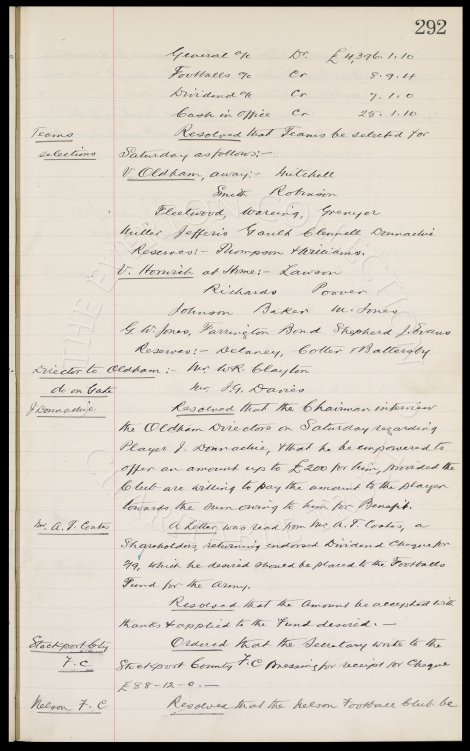 292
General a/c Dr. £4,396.1.10
Footballs a/c Cr 8.9.4
Dividend a/c Cr 7.1.0
Cash in office Cr 25.1.10
Teams Resolved that Teams be selected for
selections Saturday as follows:-
V Oldham, away:- Mitchell
Smith Robinson
Fleetwood, Wareing, Grenyer
Miller Jefferis Gault Clennell Donnachie
Reserves:- Thompson & Williams.
V. Horwich at Home:- Lawson
Richards
Johnson Baker M. Jones
G. W. Jones, Farrington Bond Shepherd J. Evans
Reserves:- Delaney, Cotter & Battersby
Director to Oldham:- Mr. W.R. Clayton
do on Gate Mr. J.G. Davies
J Donnachie Resolved that the Chairman interview
the Oldham Directors on Saturday regarding
Player J. Donnachie, & that he be empowered to
offer an amount up to £200 for him, provided the
Club are willing to pay the amount to the player
towards the sum owing to him for Benefit.
Mr. A. T. Coates A letter was read from Mr. A. T. Coates, a
Shareholder, returning endorsed Dividend Cheque for
which he desired should be placed to the Footballs
Fund for the Army.
Resolved that the amount be accepted with
thanks & applied to the Fund desired.—
Stockport Cty Ordered that the Secretary write to the
F.C Stockport County F.C pressing for receipt for Cheque
£88-12-0.—
Nelson F.C Resolved that the Nelson Football Club be